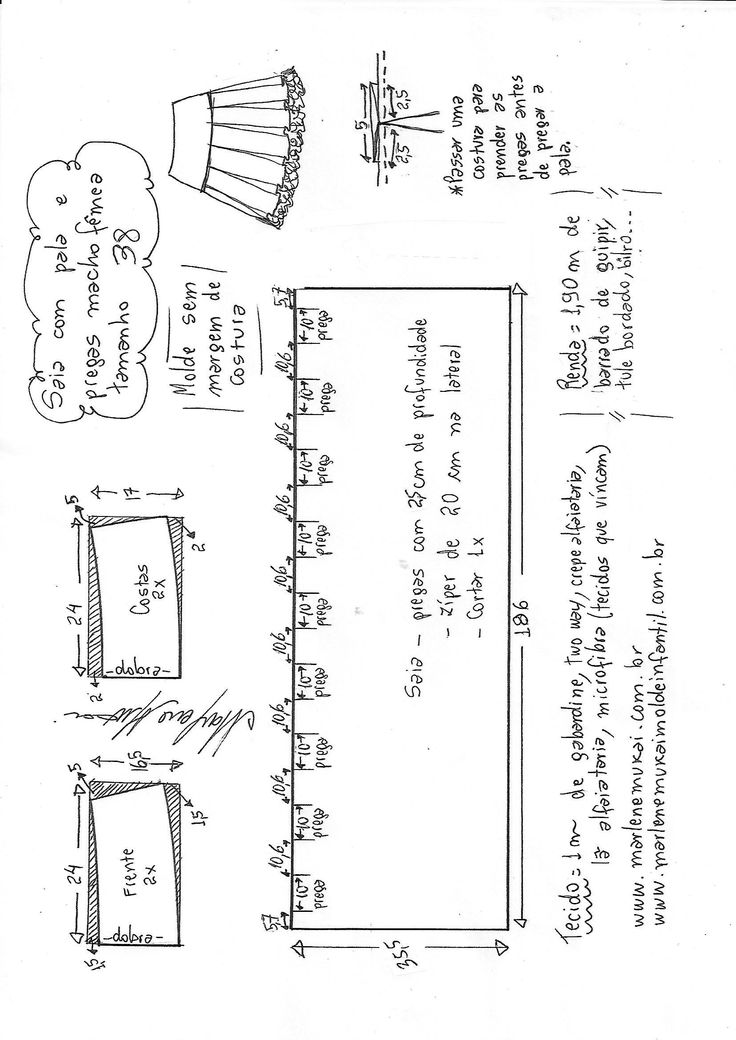 Saia com pala e
pregas macho fêmea
tamanho 38
Molde sem
margem de
costura
24
5
16,5
1,5
1,5
Frente
2x
-dobra-
Marlene Mukai
24
5
17
2
2
Costas
2x
-dobra-
5,7
10
prega
10,6
10
prega
10,6
10
prega
10,6
10
prega
10,6
10
prega
10,6
10
prega
10,6
10
prega
10,6
10
prega
10,6
10
prega
5,7
35,5
Saia - pregas com 2,5cm de profundidade
- zíper de 20 cm na lateral
- Cortar 1x
186
5
2,5
2,5
*Passar uma
costura para
prender as
pregas antes
de pregar a
pala.
Tecido = 1m de gabardine, two way, crepe alfaiataria,
lã alfaiataria, microfibra (tecidos que vincam)
www.marlenemukai.com.br
www.marlenemukaimoldeinfantil.com.br
Renda = 1,90m de
barrado de guipir,
tule bordado, bilro...